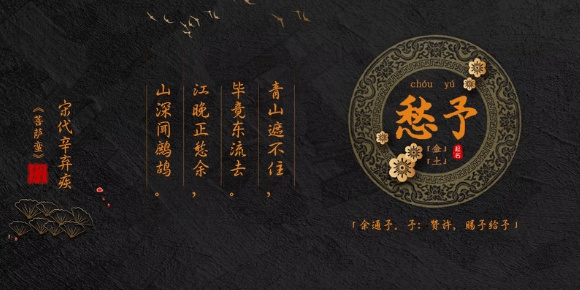 chóu yú
愁予
「金」
「土」
起名
「余通予，予：赞许，赐予给予」
青山遮不住，
毕竟东流去。
江晚正愁余，
山深闻鹧鸪。
宋代辛弃疾
《菩萨蛮》